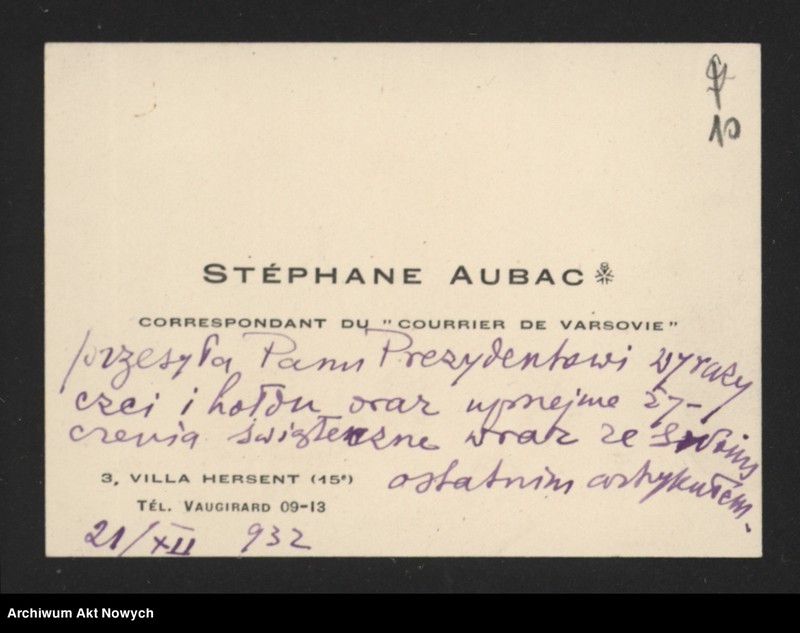 10
STÉPHANE AUBAC
CORRESPONDANT DU "COURRIER DE VARSOVIE"
przesyła Panu Prezydentowi wyrazy
czci i hołdu oraz uprzejme ży-
czenia świąteczne wraz ze swoim
3, VILLA HERSENT (15e) ostatnim artykułem.
TÉL. VAUGIRARD 09-13
21/XII 932
Archiwum Akt Nowych